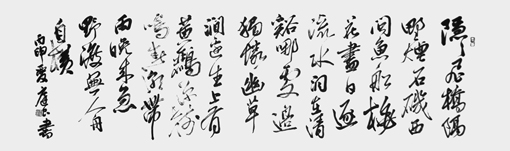 隱隱飛橋隔
野煙石磯西
問魚船桃
花盡日隨
流水洞在清
谿何處邊
獨憐幽草
澗邊生上有
黃鸝深樹
鳴春潮帶
雨晚來急
野渡無人舟
自橫
丙申夏 書